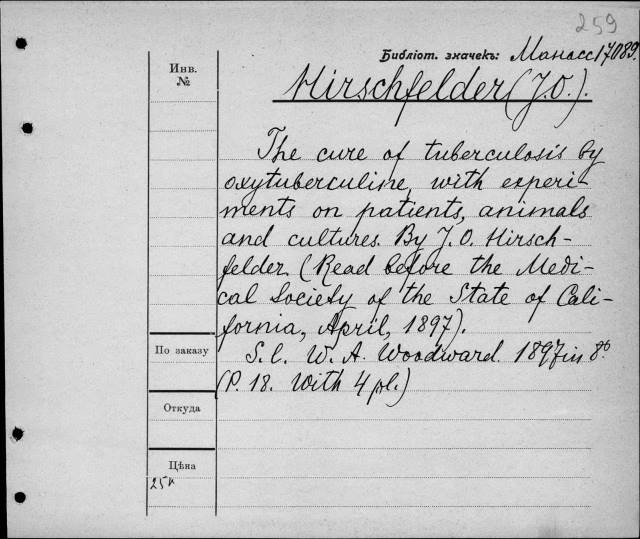 259
Библіот. значекъ: Манасс 17089.
Инв.
№
Hirschfelder (J.O.).
The cure of tuberculosis by
oxytuberculine, with experi-
ments on patients, animals
and cultures. By J. O. Hirsch-
felder. (Read before the Medi-
cal Society of the State of Cali-
fornia, April, 1897).
По заказу
S. l. W. A. Woodward. 1897 in 8º
(P. 18. With 4 pl.)
Откуда
Цѣна
25к